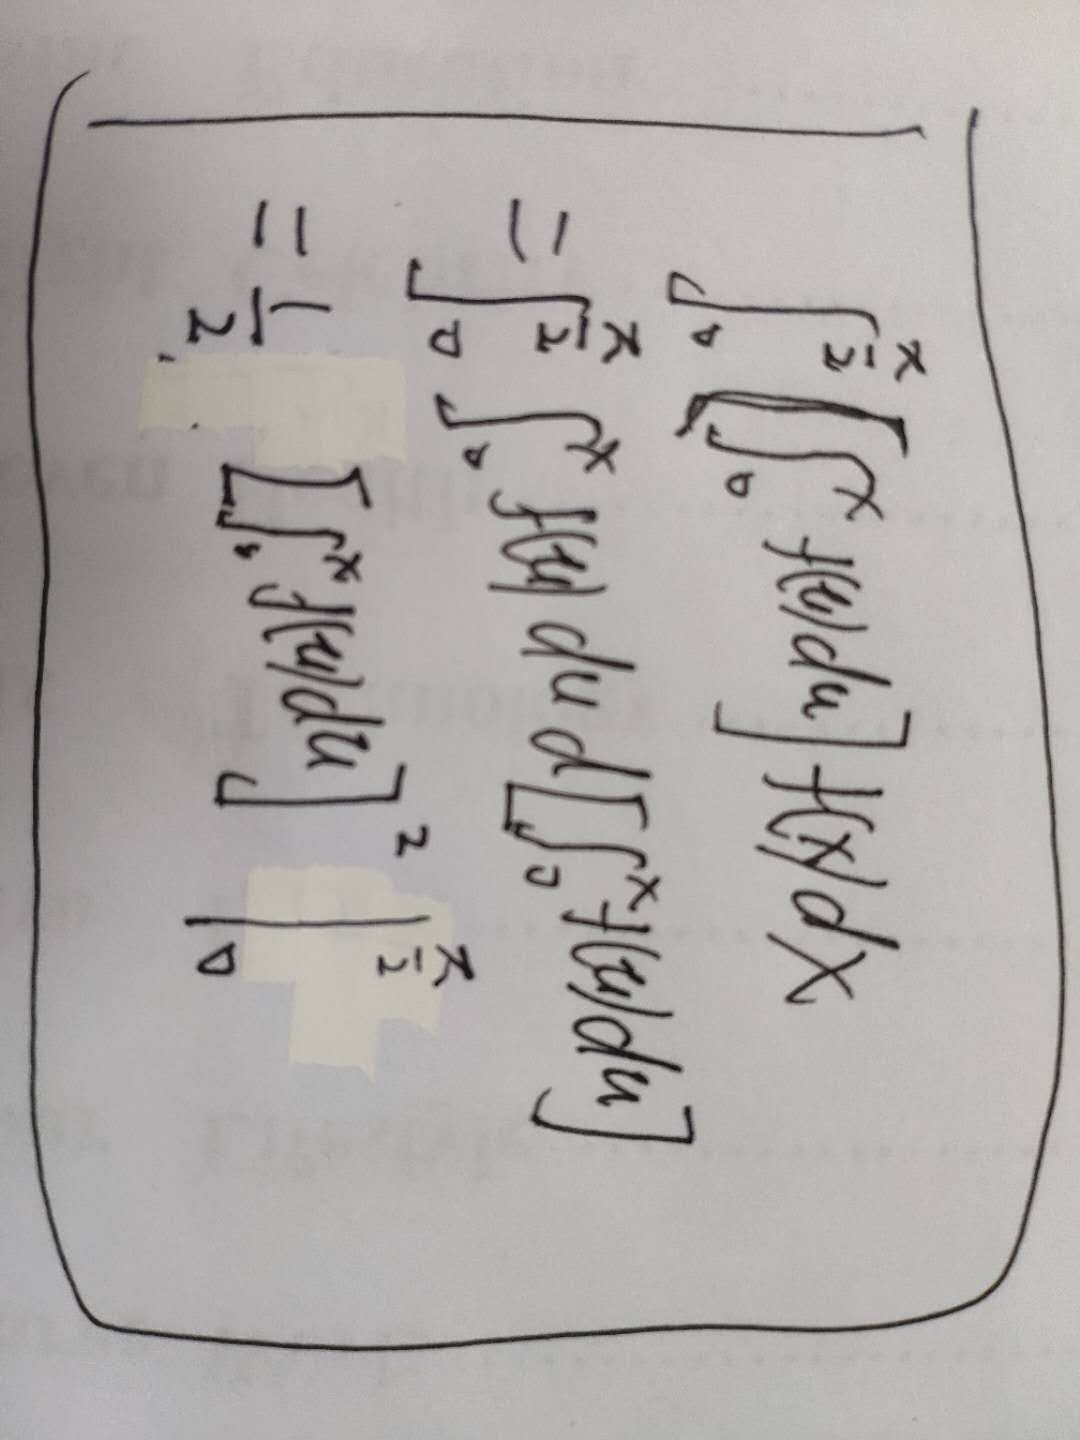 ∫₀^{π/2} [∫₀^x f(u)du] f(x)dx
= ∫₀^{π/2} ∫₀^x f(u) du d[∫₀^x f(u)du]
= 1/2 [∫₀^x f(u)du]² |₀^{π/2}